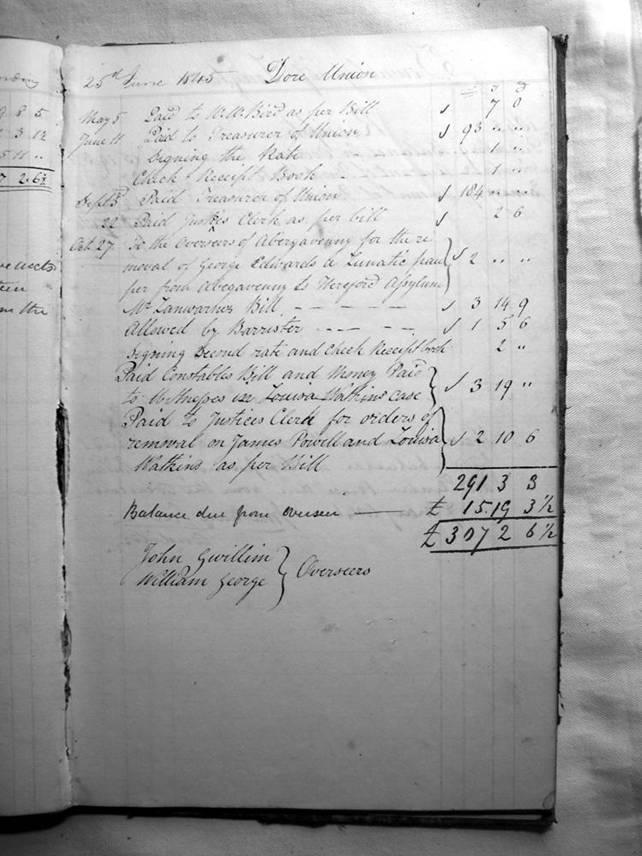 9 8 5
3 12
5 11 "
7 2 6½
on the
25th June 1845 Dore Union
May 5 Paid to W. W. Bird as per Bill √ 7 0
June 11 Paid to Treasurer of Union √ 93 " "
Signing the Rate 1 "
Check Receipt Book - 1 "
Sept 13 Paid Treasurer of Union √ 184 " "
22 Paid Justices Clerk as per bill √ 2 6
Oct 27 To the Overseers of Abergavenny for the re
moval of George Edwards a Lunatic pau √ 2 " "
per from Abegavenny to Hereford Assylum
Mr Lanwarnes Bill - - - - - √ 3 14 9
Allowed by Barrister - - - - - √ 1 5 6
signing second rate and Check Receipt book 2 "
Paid Constables Bill and Money Paid
to Witnesses in Louisa Watkins case √ 3 19 "
Paid to Justices Clerk for orders of
removal on James Powell and Louisa √ 2 10 6
Watkins as per Bill
291 3 3
Balance due from overseer — £ 15 19 3½
£ 307 2 6½
John Gwillim
William George } Overseers